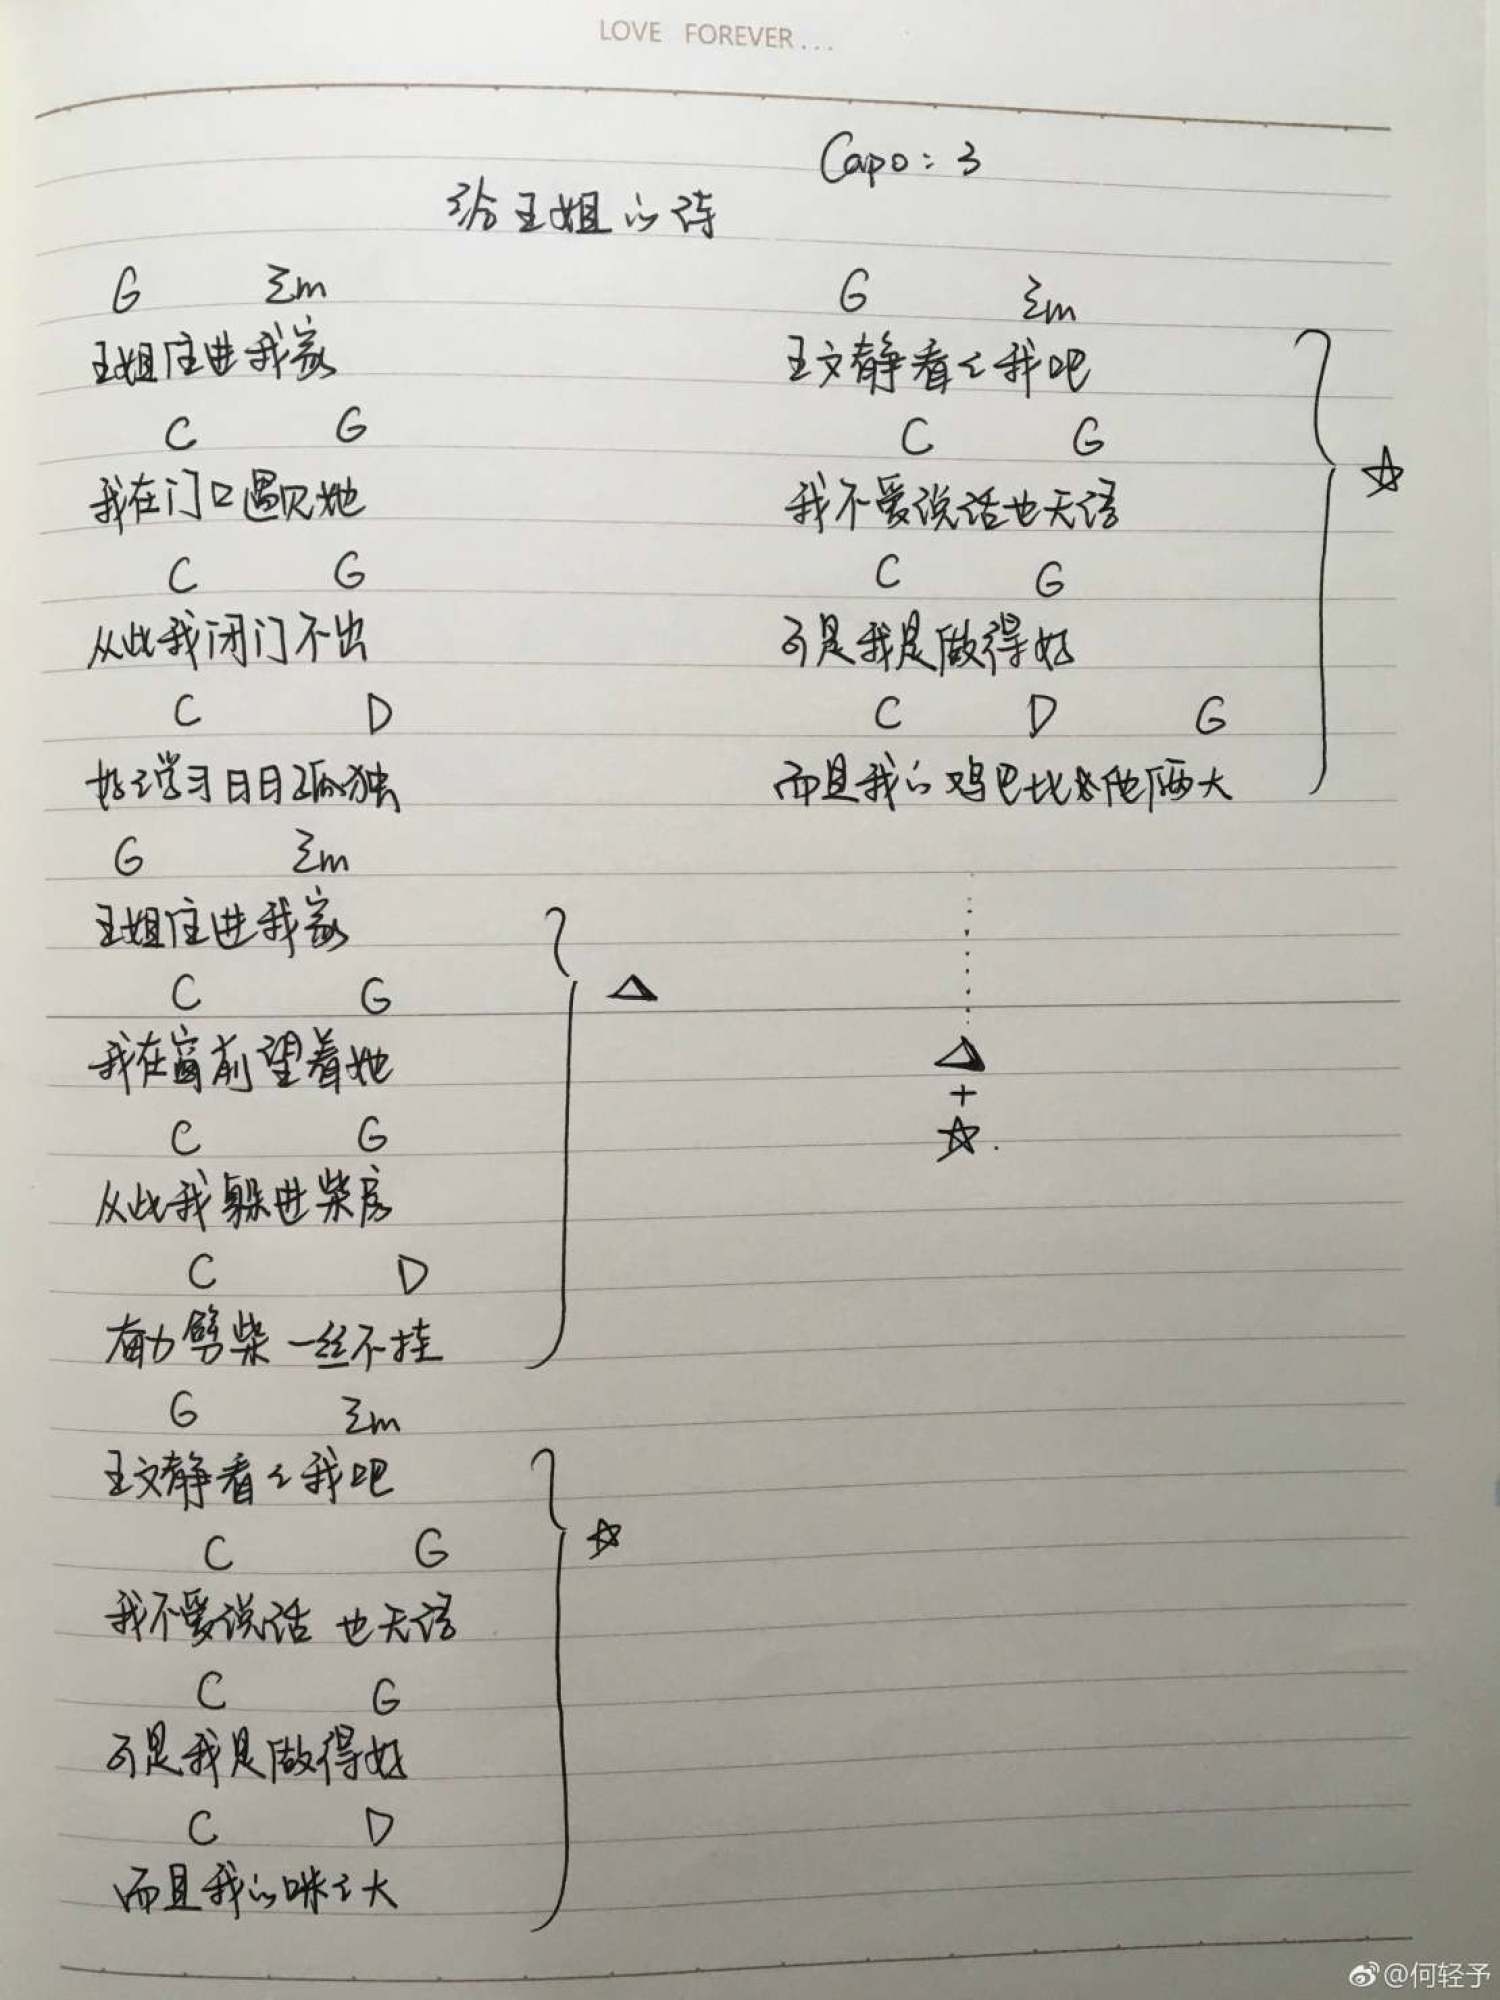 LOVE FOREVER...
Capo: 3
给王姐的诗
G Em
王姐住进我家
C G
我在门口遇见她
C G
从此我闭门不出
C D
好好学习日日孤独
G Em
王姐住进我家
C G
我在窗前望着她
C G
从此我躲进柴房
C D
奋力劈柴 一丝不挂
G Em
王文静看看我吧
C G
我不爱说话 也无语
C G
可是我是做得好
C D
而且我的咪咪大
G Em
王文静看看我吧
C G
我不爱说话也无语
C G
可是我是做得好
C D G
而且我的鸡巴比其他俩大
△
+
☆.
@何轻予